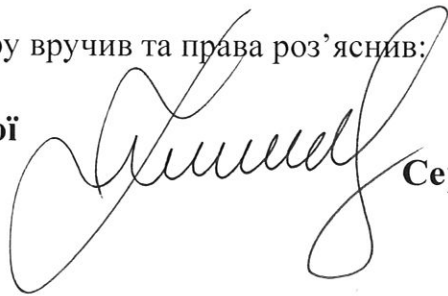 ру вручив та права роз’яснив:
ої
Се